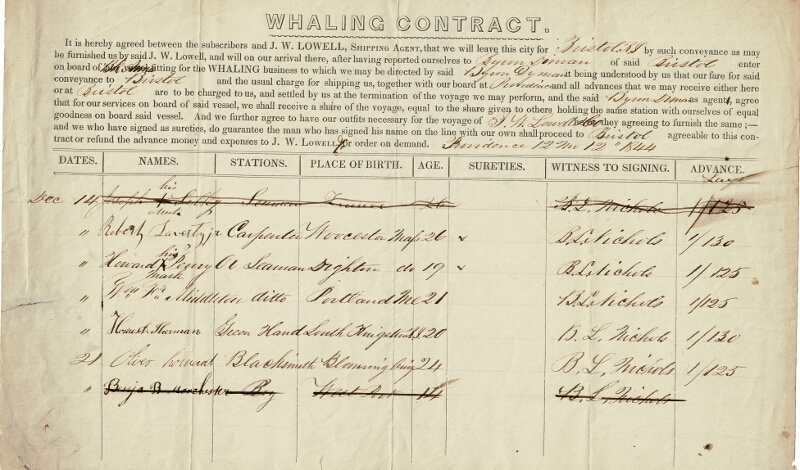 WHALING CONTRACT.
It is hereby agreed between the subscribers and J. W. LOWELL, SHIPPING AGENT, that we will leave this city for Bristol RI by such conveyance as may
be furnished us by said J. W. Lowell, and will on our arrival there, after having reported ourselves to Byron Diman of said Bristol enter
on board of fitting for the WHALING business to which we may be directed by said Byron Dyman it being understood by us that our fare for said
conveyance to Bristol and the usual charge for shipping us, together with our board at Providence and all advances that we may receive either here
or at Bristol are to be charged to us, and settled by us at the termination of the voyage we may perform, and the said Byron Diman as agent, agree
that for our services on board of said vessel, we shall receive a share of the voyage, equal to the share given to others holding the same station with ourselves of equal
goodness on board said vessel. And we further agree to have our outfits necessary for the voyage of J. W. Lowell they agreeing to furnish the same;—
and we who have signed as sureties, do guarantee the man who has signed his name on the line with our own shall proceed to Bristol agreeable to this con-
tract or refund the advance money and expenses to J. W. LOWELL or order on demand. Providence 12 Mo 12 " 1844
DATES. NAMES. STATIONS. PLACE OF BIRTH. AGE. SURETIES. WITNESS TO SIGNING. ADVANCE.
Lays
his
Dec 14 Joseph X Seaman 26 B. L. Nichols 1/125
mark
" Robert Carpenter Worcester Mass 26 " B L Nichols 1/130
his
" Howard X Penny O Seaman Dighton do 19 " B. L. Nichols 1/125
mark
" Wm Middleton ditto Portland Me 21 B L Nichols 1/125
" Sherman Green Hand South Kingston RI 20 B. L. Nichols 1/130
21 Oliver Howard Blacksmith 24 B. L. Nichols 1/125
" Benja B Manchester Boy West Port 14 B. L. Nichols